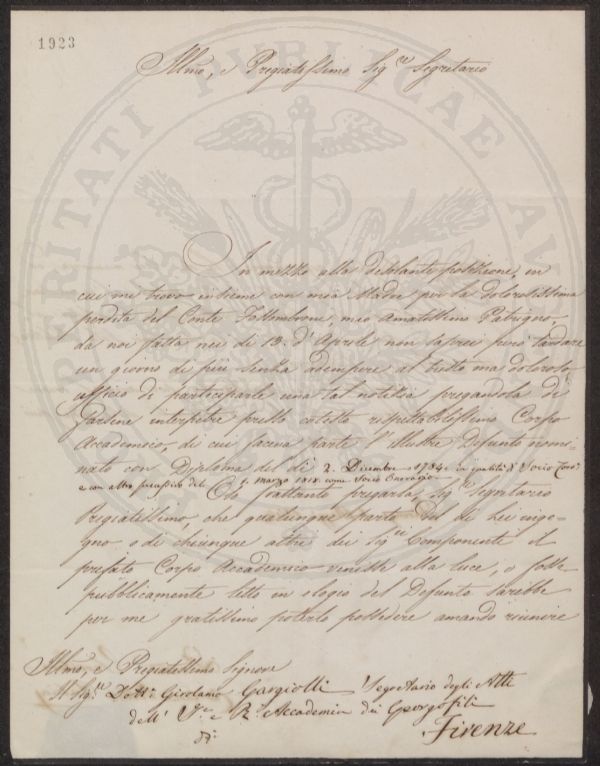 1923
Illmo, e Pregiatissimo Sigre Segretario
In mezzo alla desolante posizione, in
cui mi trovo insieme con mia Madre per la dolorosissima
perdita del Conte Fossombrone, mio amatissimo Patrigno,
da noi fatta nei dì 13. d'Aprile non saprei però tardare
un giorno di più senza adempire al tristo ma doloroso
ufficio di parteciparle una tal notizia pregandola di
farsene interpetre presso cotesto rispettabilissimo Corpo
Accademico, di cui faceva parte l'illustre Defunto nomi-
nato con Diploma del dì 2. Dicembre 1794. in qualità di Socio Corr.
e con altro del 9. Marzo 1818. come Socio Onorario
Oso frattanto pregarla, Sigre Segretario
Pregiatissimo, che qualunque parto del di Lei inge-
gno o di chiunque altri dei Sigri Componenti il
prefato Corpo Accademico venisse alla luce, o fosse
pubblicamente letto in elogio del Defunto sarebbe
per me gratissimo poterlo possedere amando riunire
Illmo, e Pregiatissimo Signore
Il Sigre Dotte Girolamo Gargiolli Segretario degli Atti
dell' I. e R. Accademia dei Georgofili
Firenze
PERITATI PVBLICAE AV